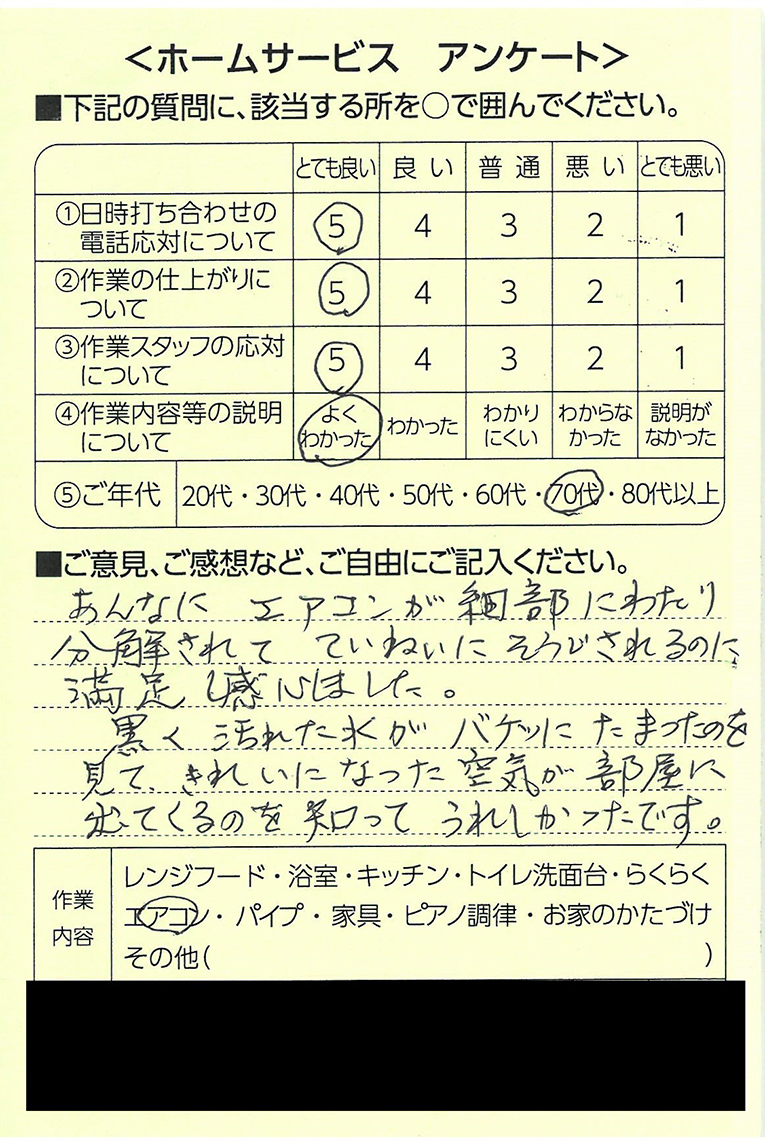 <ホームサービス アンケート>
■下記の質問に、該当する所を○で囲んでください。
とても良い 良い 普通 悪い とても悪い
①日時打ち合わせの
電話応対について 5 4 3 2 1
②作業の仕上がりに
ついて 5 4 3 2 1
③作業スタッフの応対
について 5 4 3 2 1
④作業内容等の説明
について よくわかった わかった わかりにくい わからなかった 説明がなかった
⑤ご年代 20代・30代・40代・50代・60代・70代・80代以上
■ご意見、ご感想など、ご自由にご記入ください。
あんなに エアコンが 細部にわたり
分解されて ていねいに そうじされるのに、
満足し感心しました。
黒く 汚れた水が バケツに たまったのを
見て、きれいになった空気が 部屋に
出てくるのを 知って うれしかったです。
作業
内容
レンジフード・浴室・キッチン・トイレ洗面台・らくらく
エアコン・パイプ・家具・ピアノ調律・お家のかたづけ
その他( )